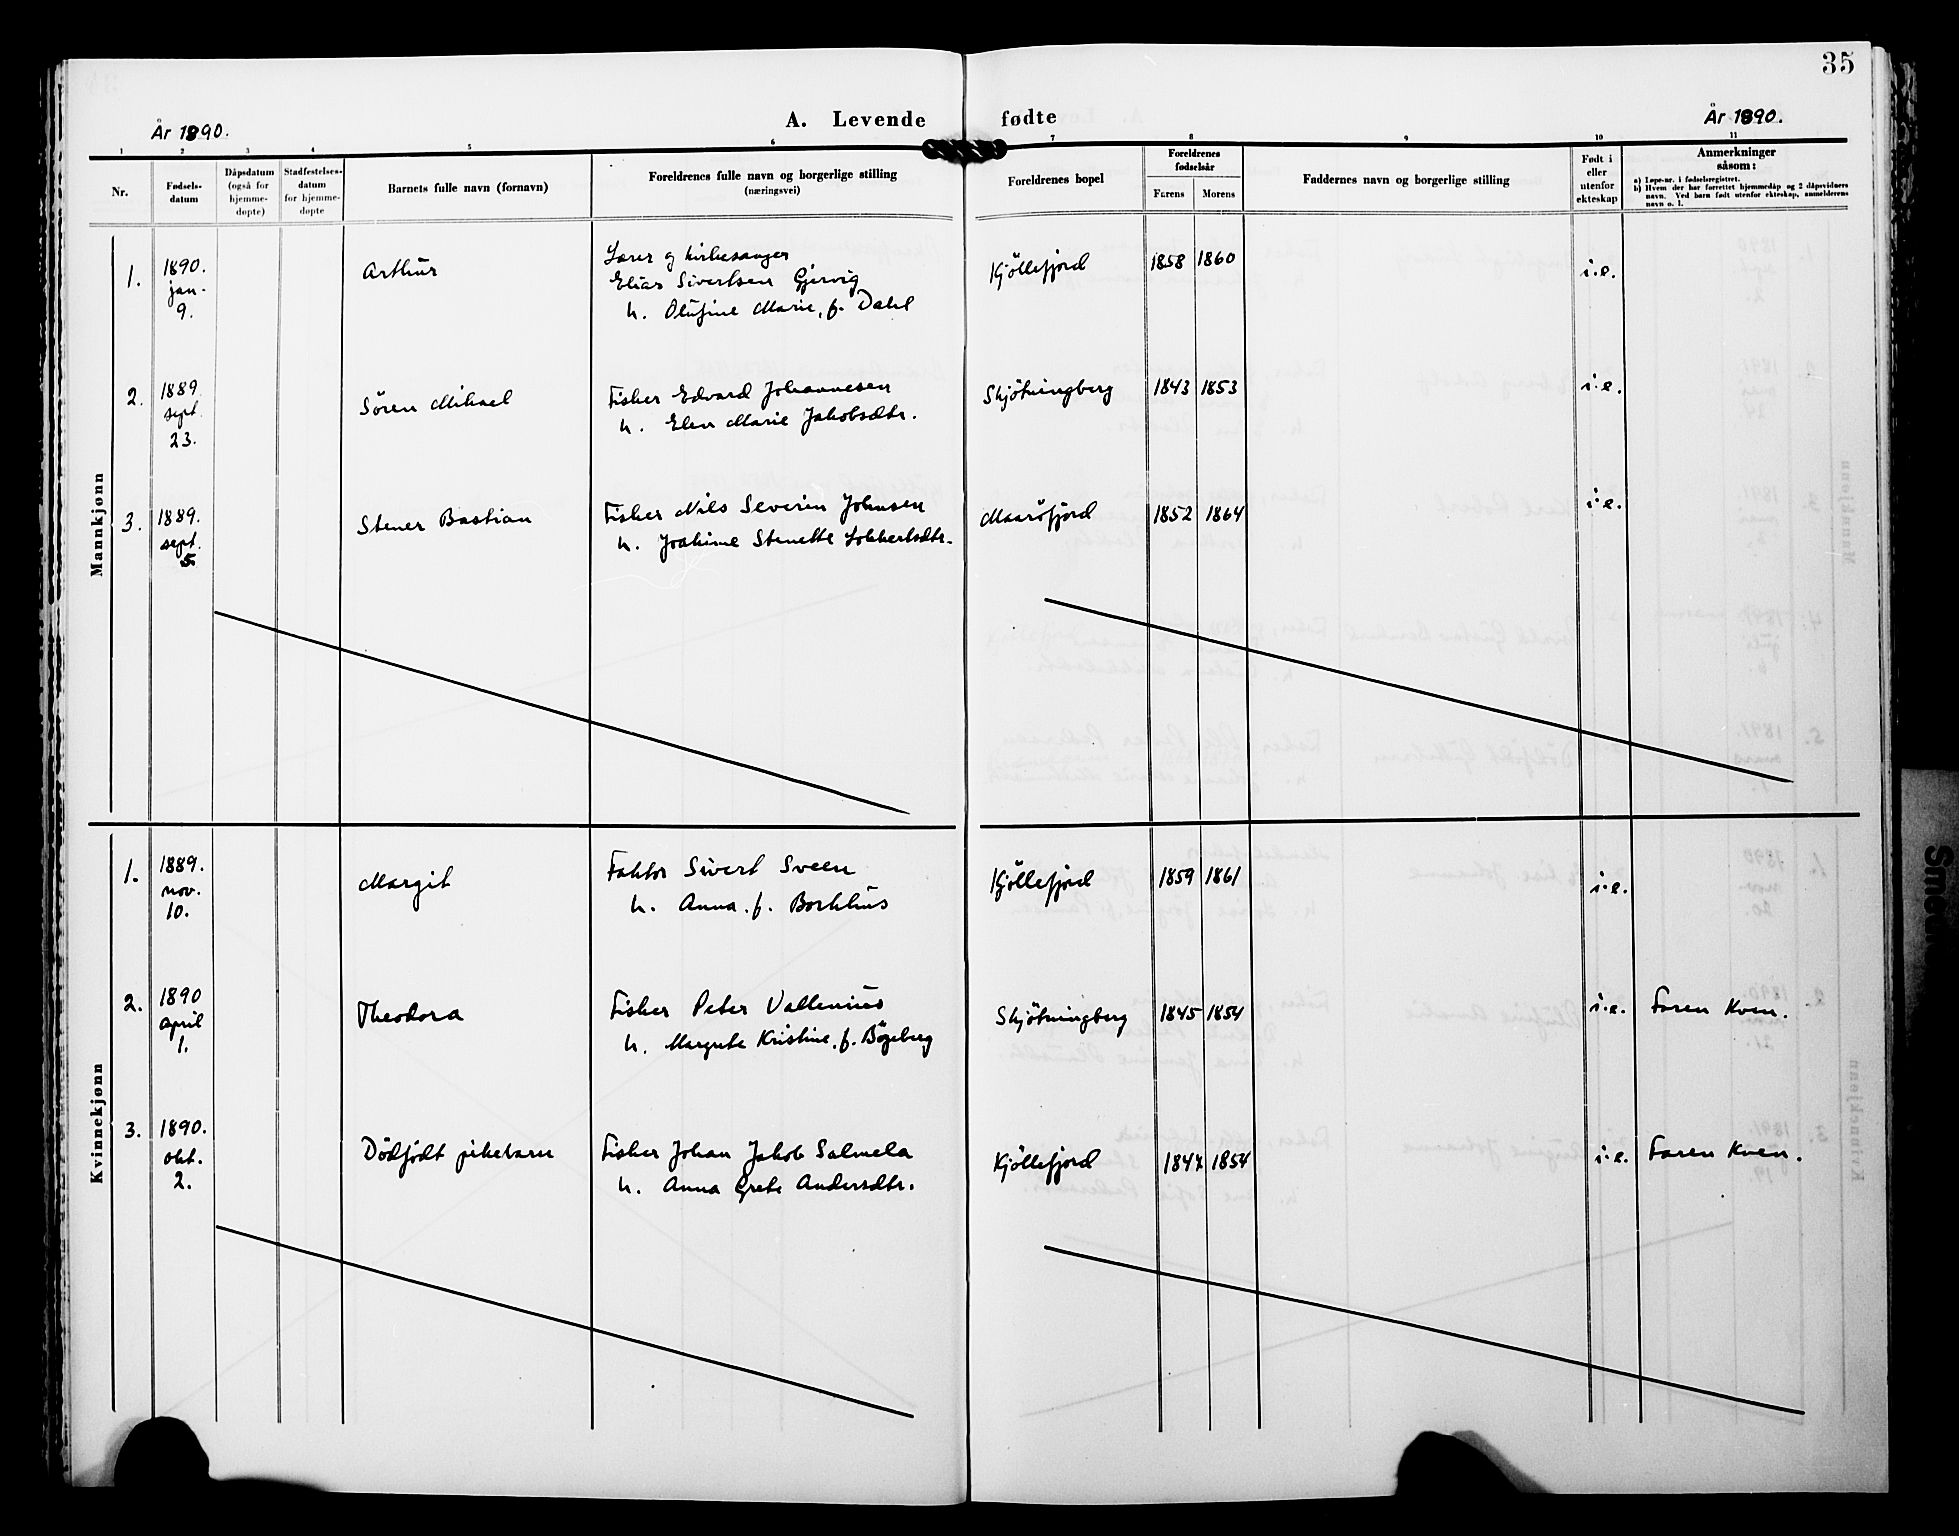 35
År 1890.
A. Levende fødte
År 1890.
1 2 3 4 5 6 7 8 9 10 11
Nr.
Fødsels-
datum
Dåpsdatum
(også for
hjemme-
døpte)
Stadfestelses-
datum
for hjemme-
døpte
Barnets fulle navn (fornavn)
Foreldrenes fulle navn og borgerlige stilling
(næringsvei)
Foreldrenes bopel
Foreldrenes
fødselsår
Farens Morens
Faddernes navn og borgerlige stilling
Født i
eller
utenfor
ekteskap
Anmerkninger
såsom:
a) Løpe-nr. i fødselsregistret.
b) Hvem der har forrettet hjemmedåp og 2 dåpsvidners
navn. Ved barn født utenfor ekteskap, anmelderens
navn o. l.
Mannkjønn
1.
1890.
jan.
9.
Arthur
Lærer og kirkesanger
Elias Sivertsen Gjervig
h. Olufine Marie, f. Dahl
Kjöllefjord
1858 1860
i.e.
2.
1889.
sept.
23.
Sören Mikael
Fisker Edvard Johannesen
h. Elen Marie Jakobsdtr.
Skjötningberg
1843 1853
i.e.
3.
1889.
sept.
5.
Stener Bastian
Fisker Nils Severin Johnsen
h. Joakime Stenette Lokkertsdtr.
Maaröfjord
1852 1864
i.e.
Kvinnekjønn
1.
1889.
nov.
10.
Margit
Faktor Sivert Sveen
h. Anna, f. Borkhus
Kjöllefjord
1859 1861
i.e.
2.
1890
april
1.
Theodora
Fisker Peter Vallenius
h. Margrete Kristine, f. Bögeberg
Skjötningberg
1845 1854
i.e.
Faren Kven.
3.
1890.
okt.
2.
Dödfödt pikebarn
Fisker Johan Jakob Salmela
h. Anna Grete Andersdtr.
Kjöllefjord
1847 1854
i.e.
Faren Kven.